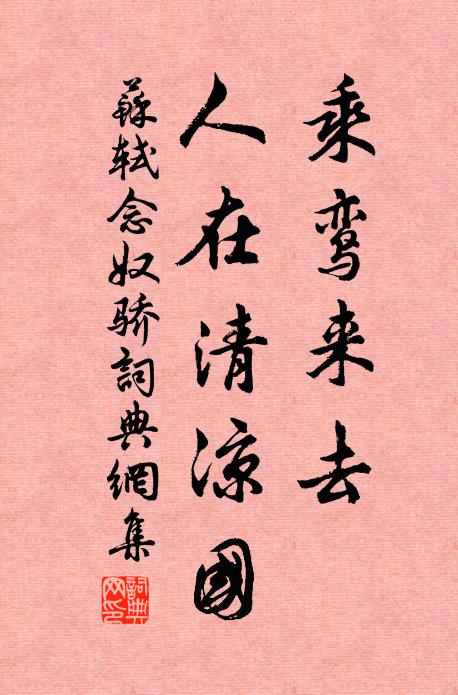 乘鸾来去
人在清凉國
蘇軾念奴骄詞典網集
詞典
网印